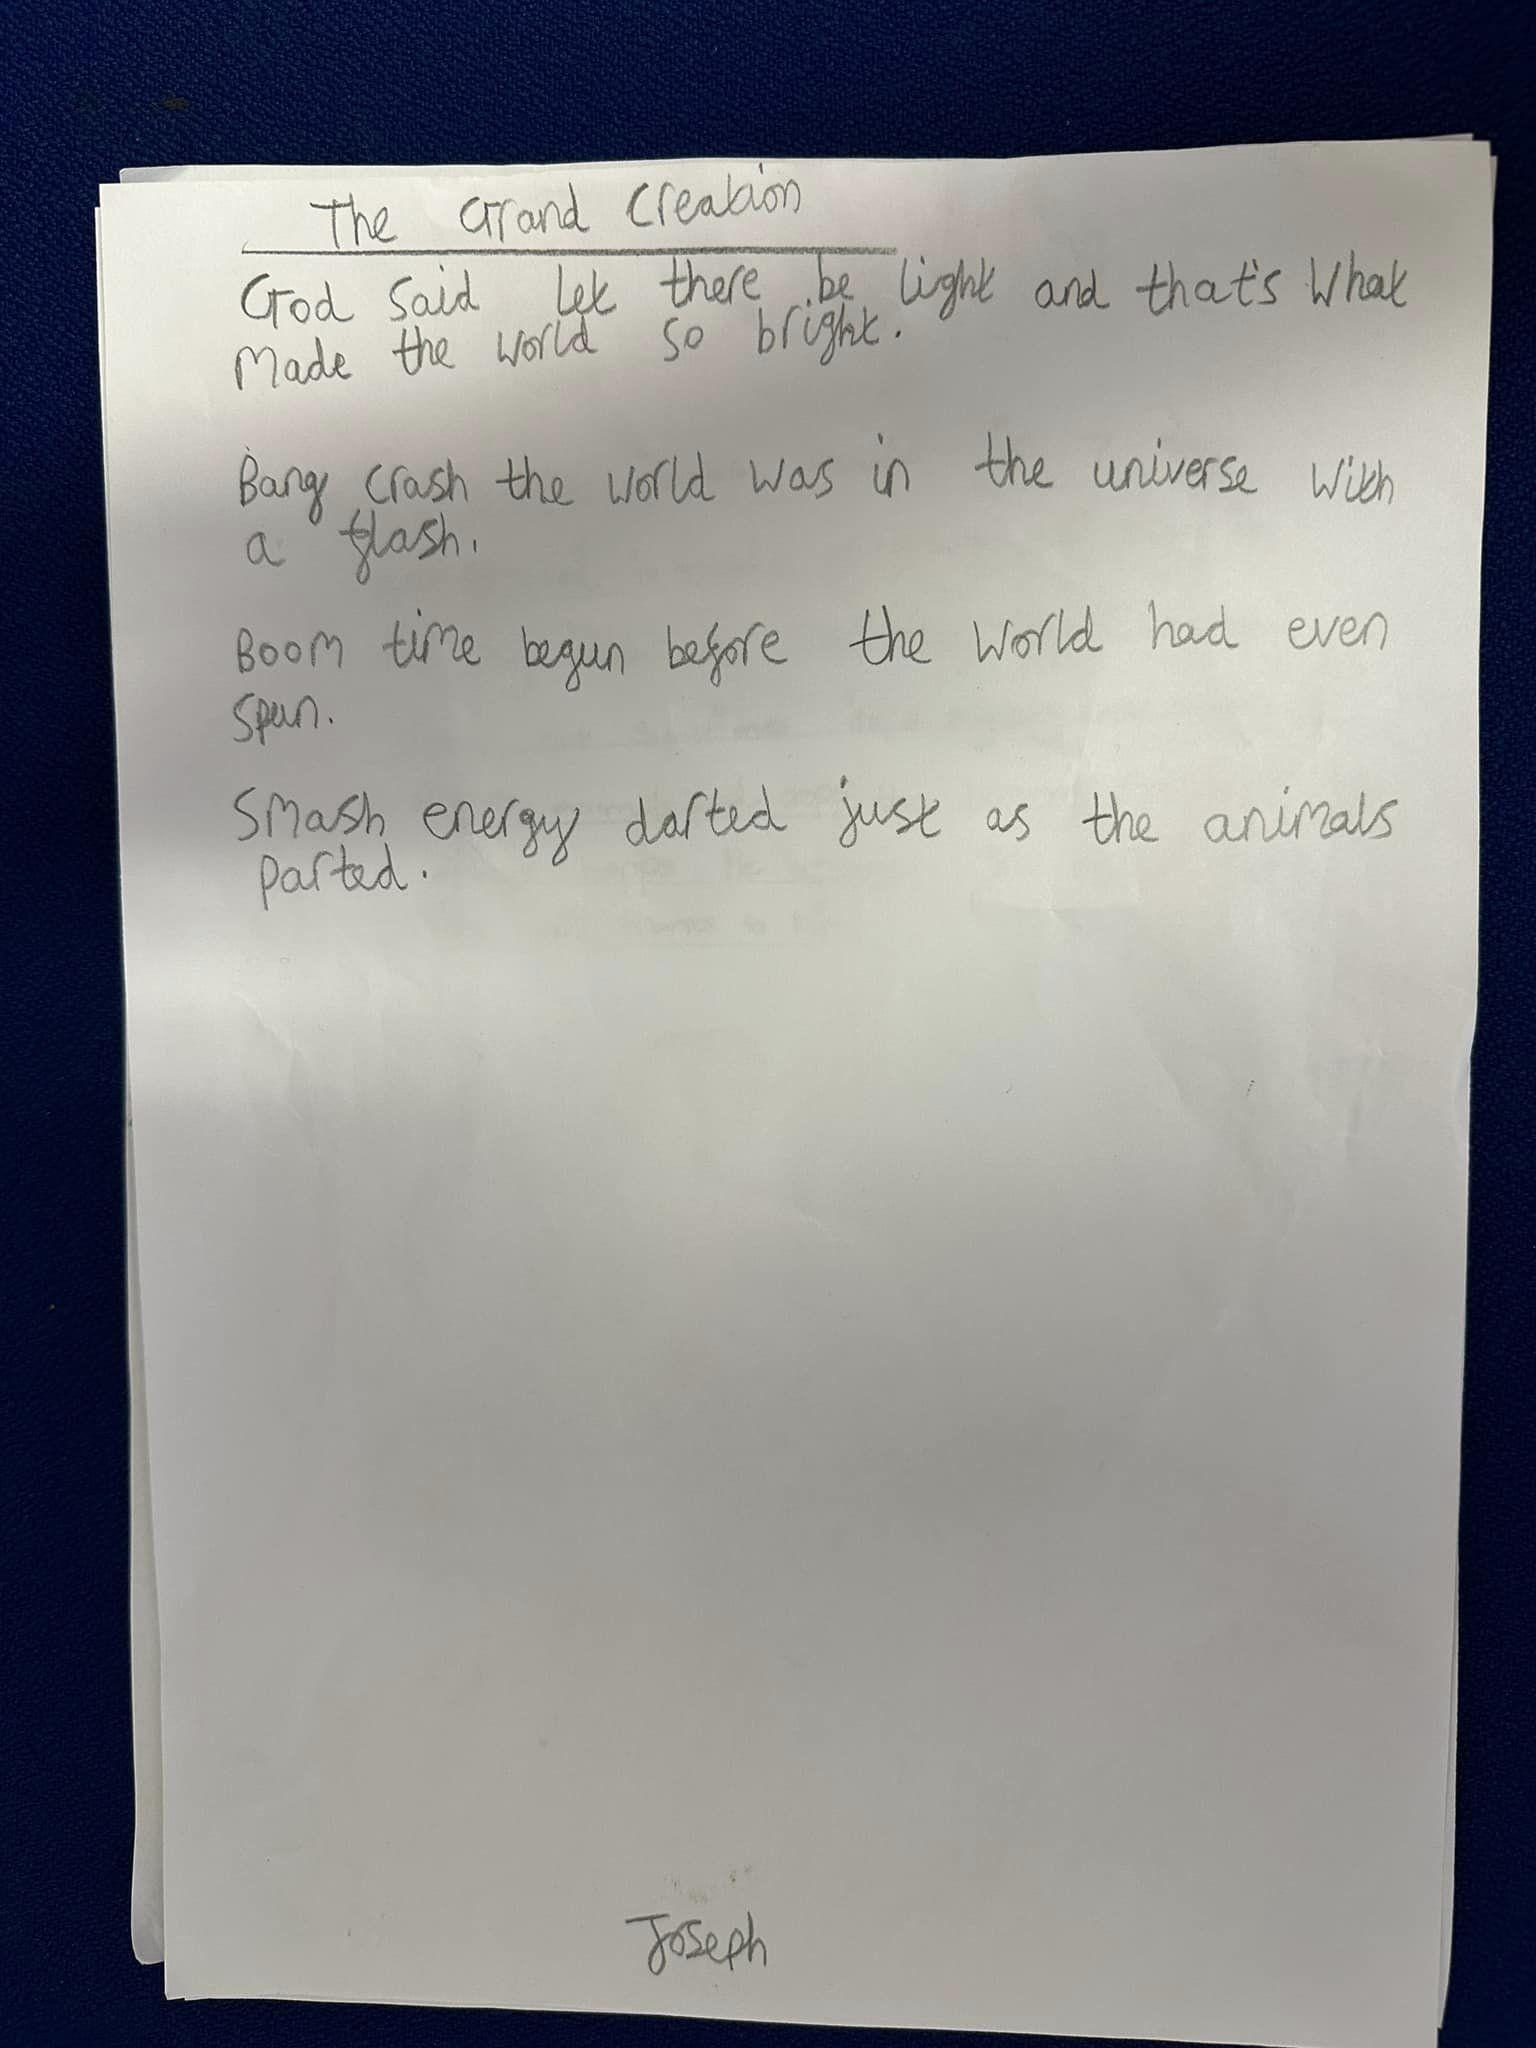 The Grand Creation
God said let there be light and that's what
made the world so bright.
Bang crash the world was in the universe with
a flash.
Boom time begun before the world had even
spun.
Smash energy darted just as the animals
parted.
Joseph